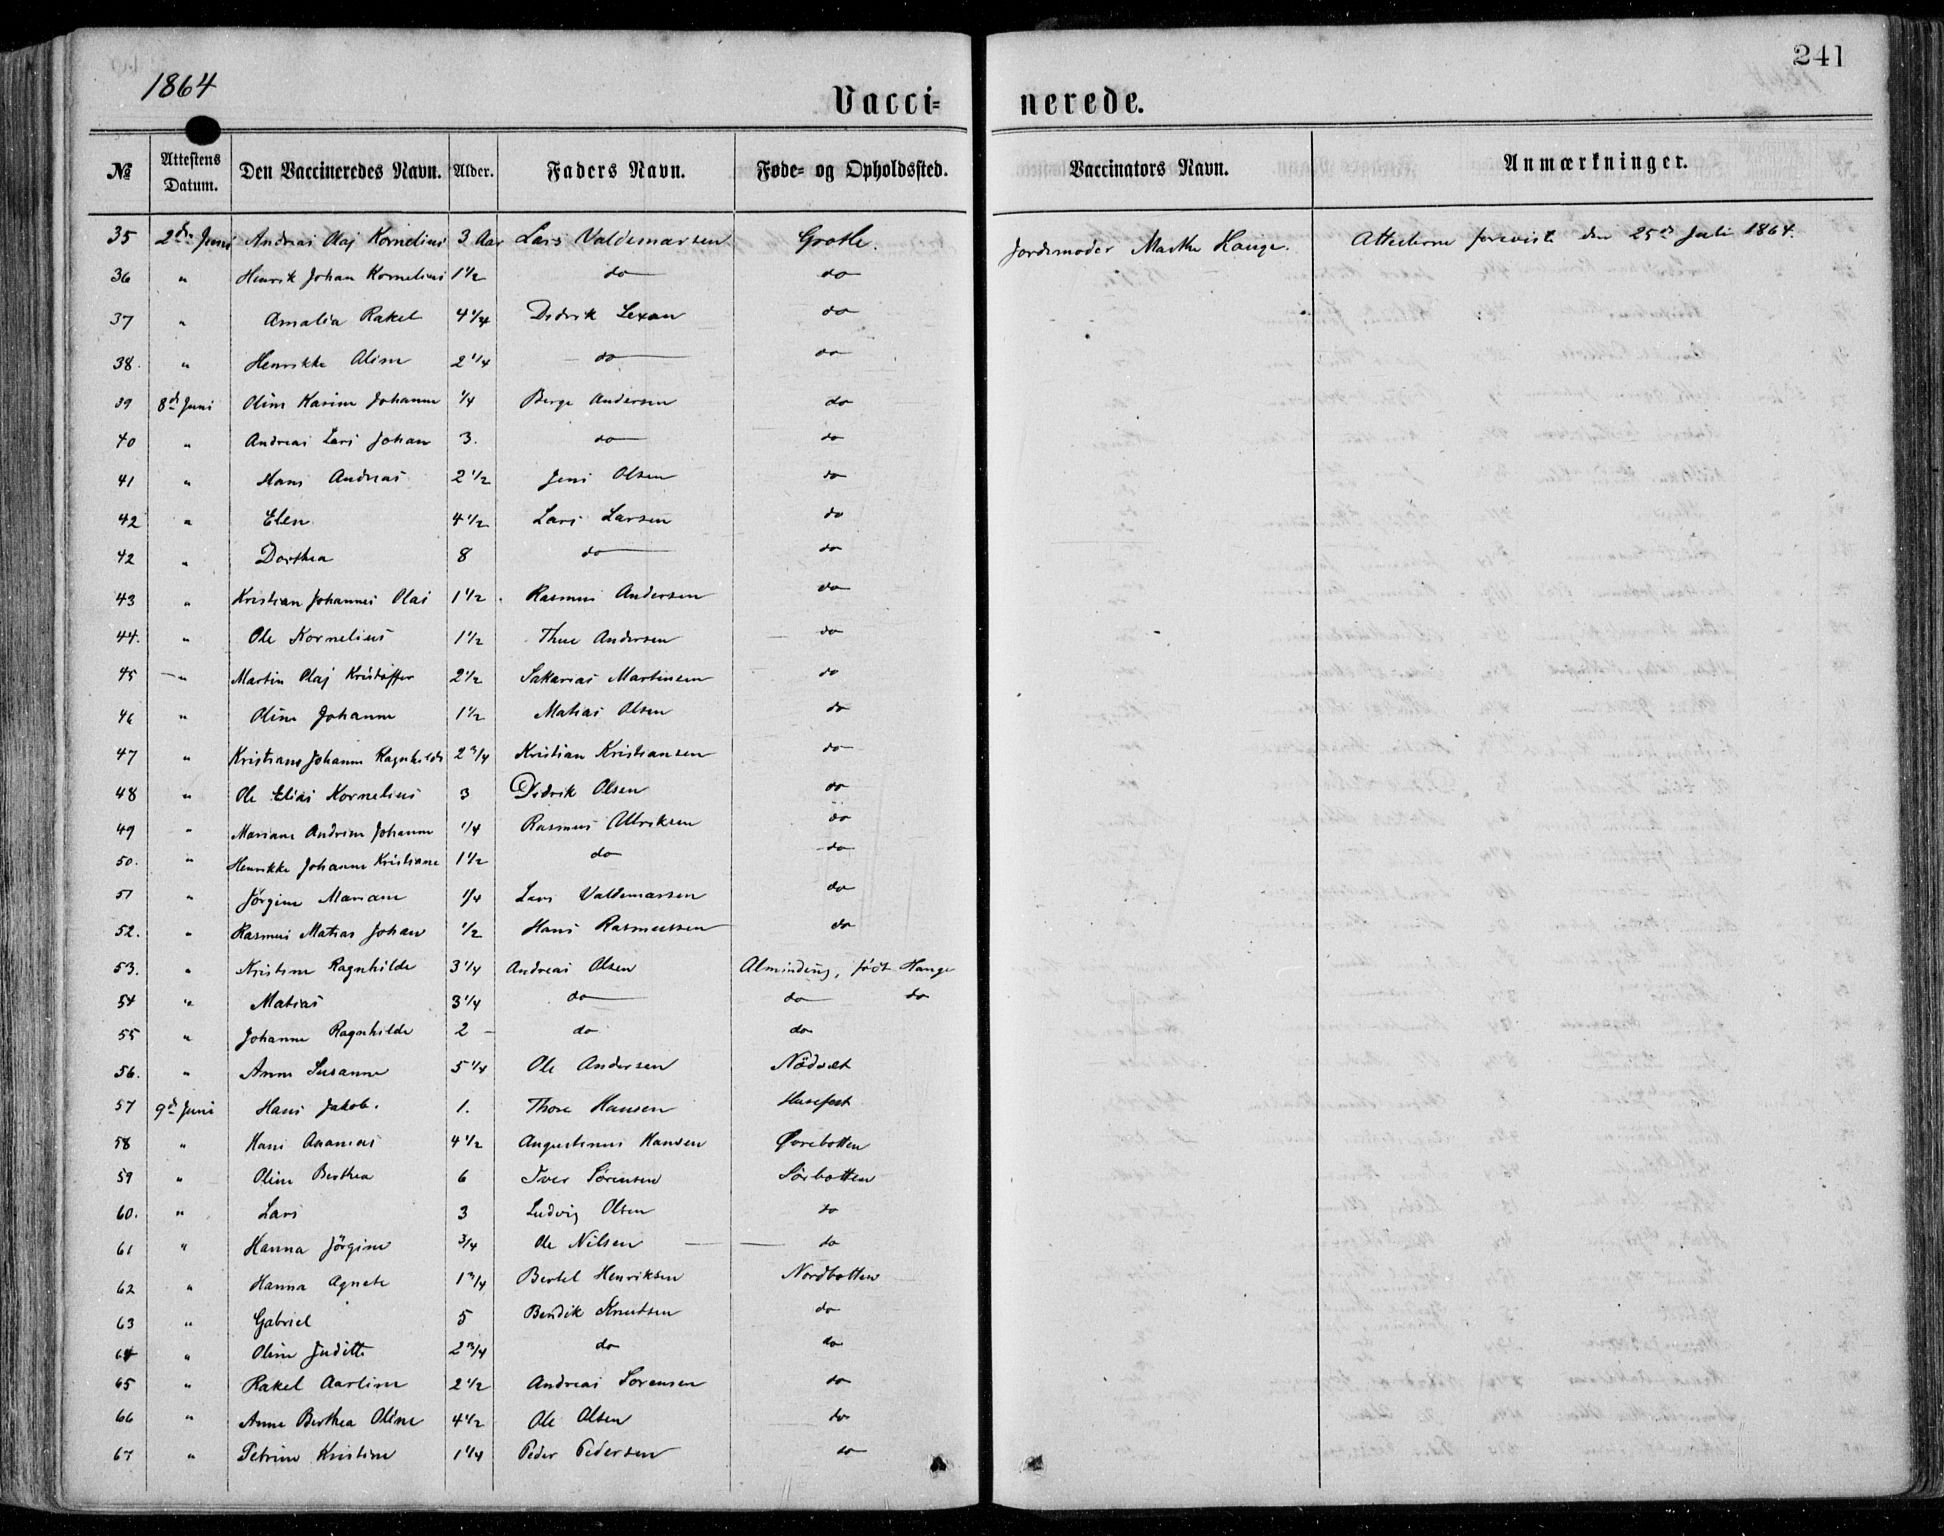 241
1864
Vacci= nerede.
№ Attestens Datum. Den Vaccineredes Navn. Alder. Faders Navn. Føde- og Opholdssted. Vaccinators Navn. Anmærkninger.
35 2den Juni Andreas Olaj Kornelius 3 Aar Lars Valdemarsen Grotle. Jordemoder Marthe Hauge. Attesterne foreviste den 25de Juli 1864.
36 " Henrik Johan Kornelius 1 1/2 do do
37 " Amalia Rakel 4 1/4 Didrik Lexau do
38. " Henrikke Oline 2 1/4 do do
39 8de Juni Oline Karine Johanne 1/4 Berge Andersen do
40 " Andreas Lars Johan 3. do do
41 " Hans Andreas 2 1/2 Jens Olsen do
42 " Elen 4 1/2 Lars Larsen do
42 " Dorthea 8 do do
43 " Kristian Johannes Olai 1 1/2 Rasmus Andersen do
44. " Ole Kornelius 1 1/2 Thue Andersen do
45 " Martin Olaj Kristoffer 2 1/2 Sakarias Martinsen do
46 " Oline Johanne 1 1/2 Matias Olsen do
47 " Kristiane Johanne Ragnhilde 2 3/4 Kristian Kristiansen do
48 " Ole Elias Kornelius 3 Didrik Olsen do
49 " Mariane Andrine Johanne 1/4 Rasmus Allriksen do
50. " Henrikke Johanne Kristiane 1 1/2 do do
51 " Jörgine Mariane 1/4 Lars Valdemarsen do
52. " Rasmus Matias Johan 1/2 Hans Rasmussen do
53. " Kristine Ragnhilde 3 1/4 Andreas Olsen Alminding, födt Hauge
54 " Matias 3 1/4 do do do
55 " Johanne Ragnhilde 2 - do do
56. " Anne Susanne 5 1/4 Ole Andersen Nödset
57 9de Juni Hans Jakob. 1. Thore Hansen Husefest
58 " Hans Ananias 4 1/2 Augustinus Hansen Øvrebotten
59 " Oline Berthea 6 Iver Sörensen Sörbotten
60. " Lars 3 Ludvig Olsen do
61 " Hanna Jörgine 3/4 Ole Nilsen do
62 " Hanna Agnete 1 3/4 Bertel Henriksen Nordbotten
63 " Gabriel 5 Bendik Knutsen do
64 " Oline Juditte 2 3/4 do do
65 " Rakel Aarline 2 1/2 Andreas Sorensen do
66 " Anne Berthea Oline 4 1/2 Ole Olsen do
67 " Petrine Kristine 1 1/4 Peder Pedersen do